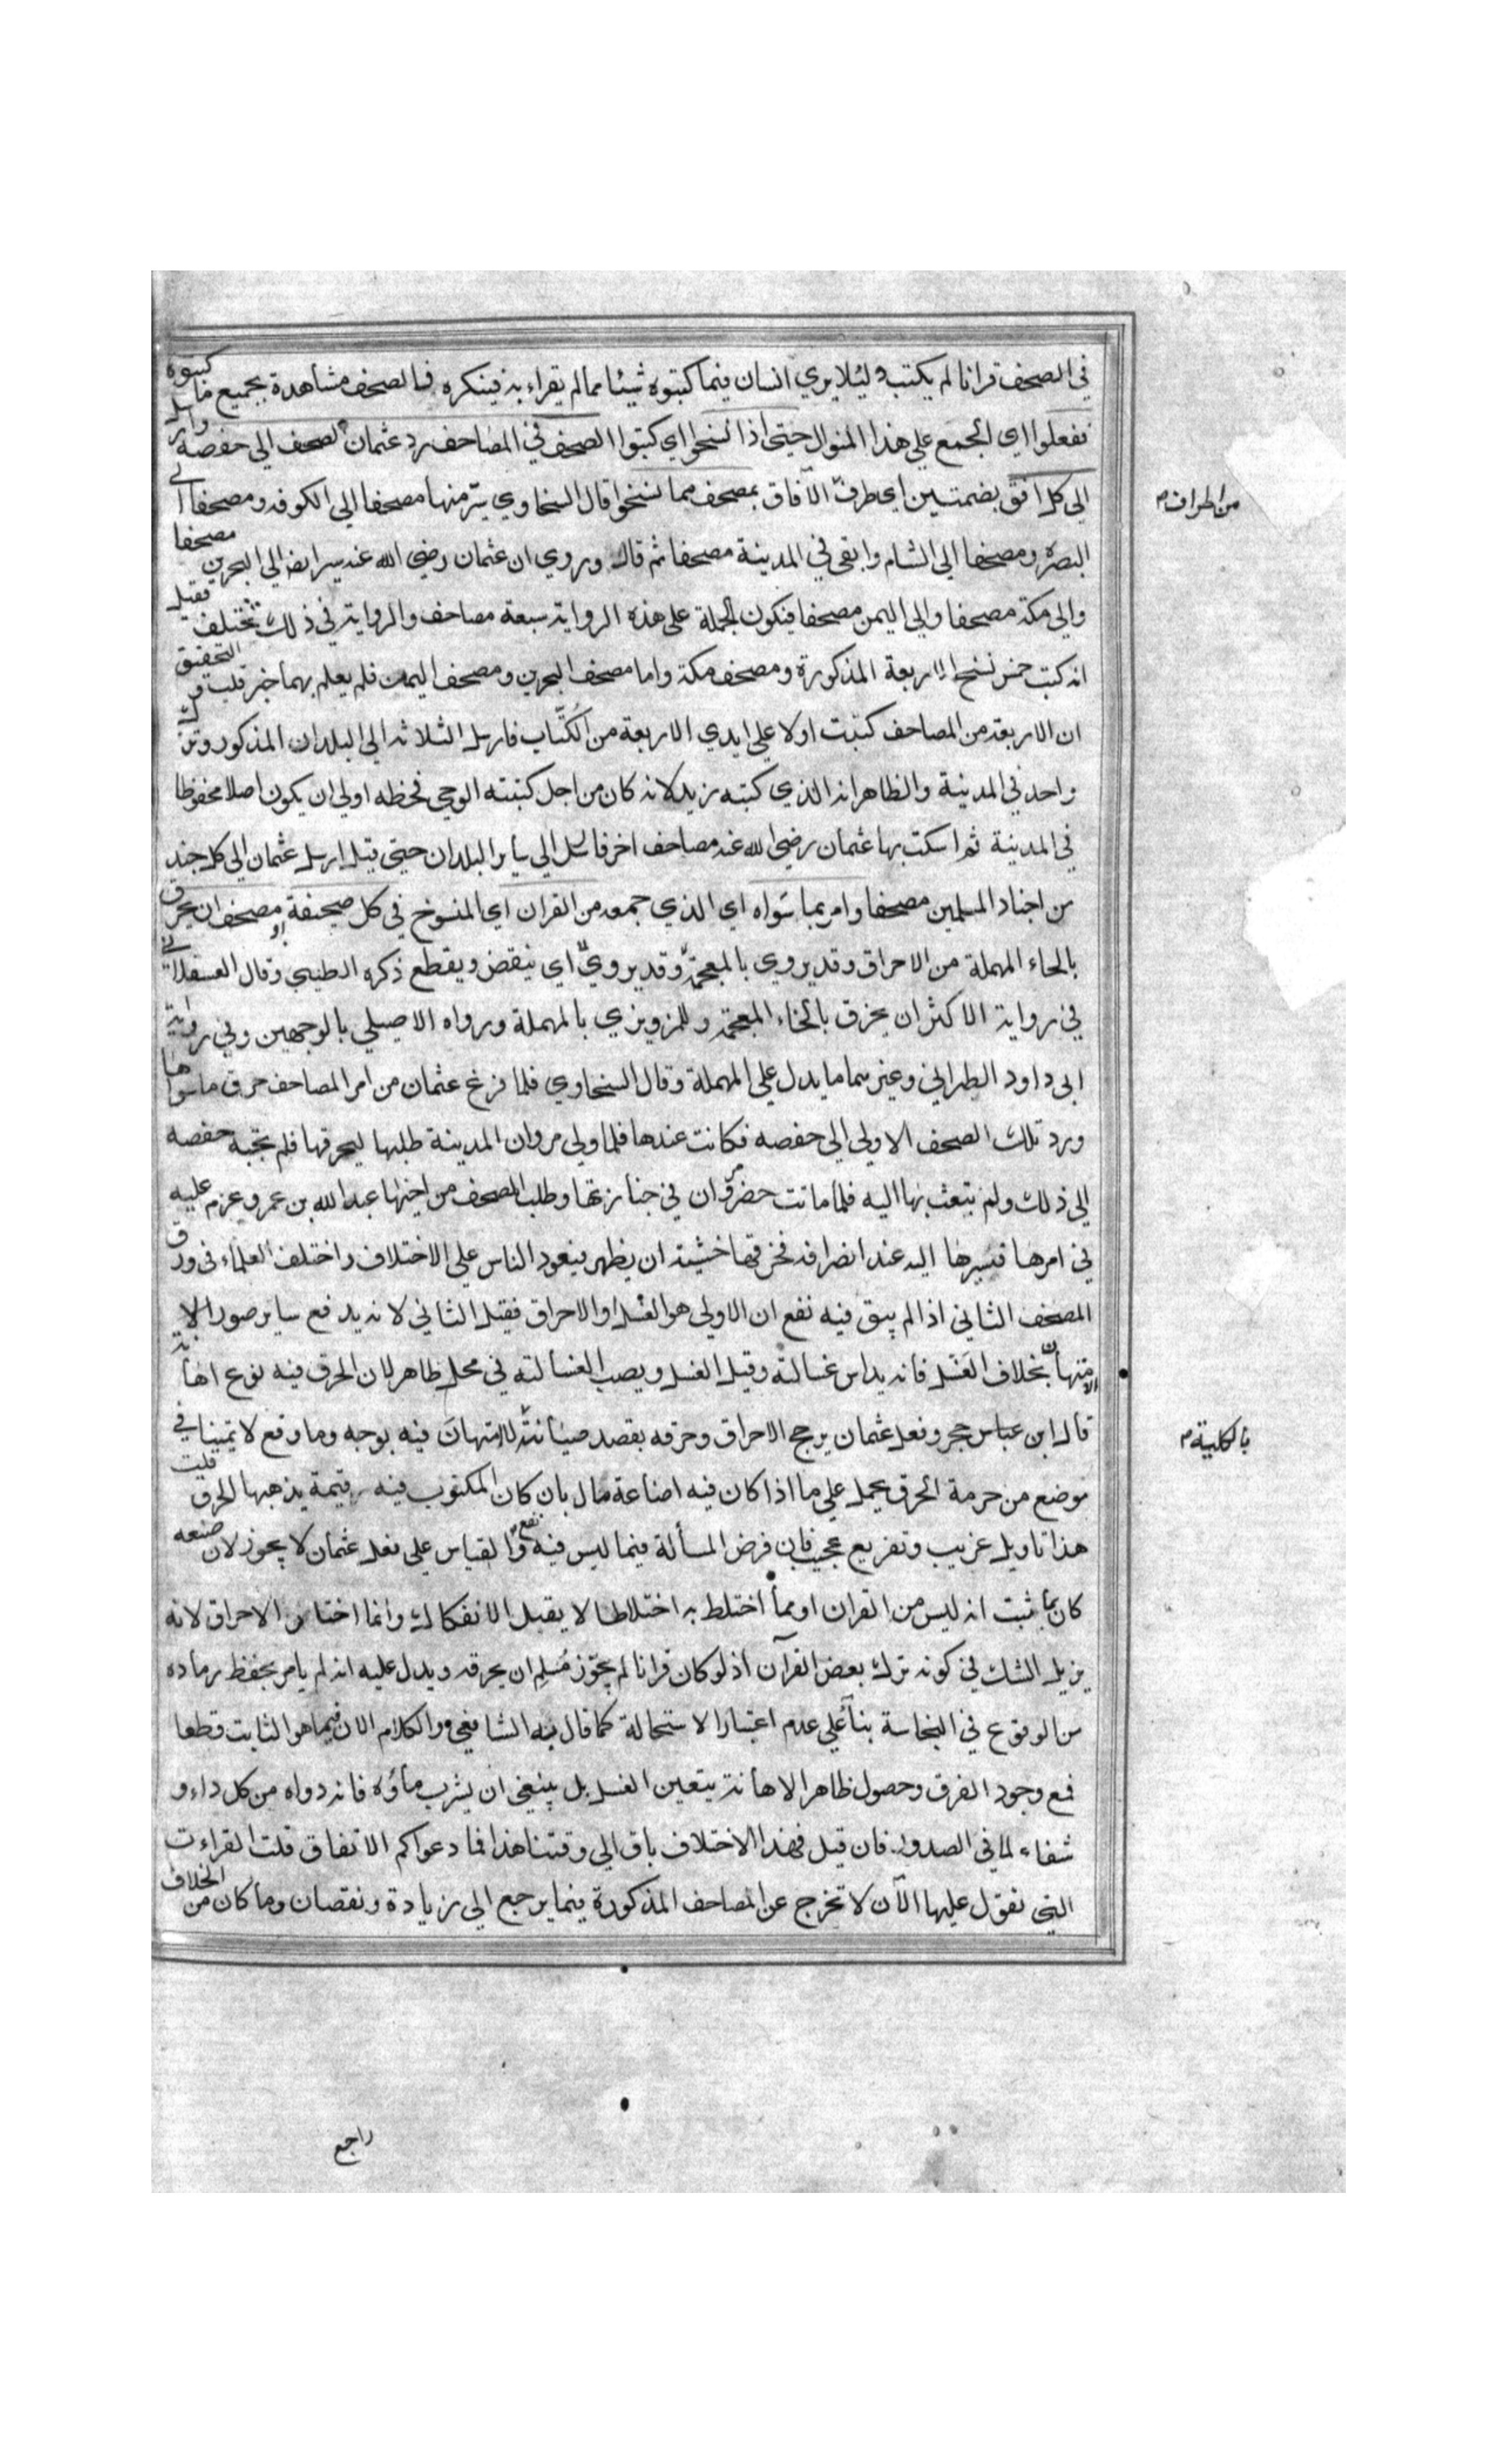 في الصحف قرانا لم يكتب ولئلا يري انسان فيما كتبوه شيئا مما لم يقراء به فينكره فالصحف مشاهدة بجميع ما كتبوه
ففعلوا اي الجمع علي هذا المنوال حتي اذا نسخوا اي كتبوا الصحف في المصاحف رد عثمان الصحف الي حفصة وارسل
الي كل افق بضمتين اي طرف من اطراف الآفاق بمصحف مما نسخوا قال السخاوي سير منها مصحفا الي الكوفه ومصحفا الي
البصرة ومصحفا الي الشام وابقي في المدينة مصحفا ثم قال وروي ان عثمان رضي الله عنه سير ايضا الي البحرين مصحفا
والي مكة مصحفا والي اليمن مصحفا فيكون الجملة علي هذه الرواية سبعة مصاحف والرواية في ذلك تختلف فقيل
انه كتب خمس نسخ الاربعة المذكورة ومصحف مكة واما مصحف البحرين ومصحف اليمن فلم يعلم بهما خبر قلت والتحقيق
ان الاربعة من المصاحف كتبت اولا علي ايدي الاربعة من الكُتَّاب فارسل الثلاثة الي البلدان المذكور وترك
واحد في المدينة والظاهر انه الذي كتبه زيد لانه كان من اجل كتبته الوحي فحظه اولي ان يكون اصلا محفوظا
في المدينة ثم استكتب بها عثمان رضي الله عنه مصاحف اخر فارسل الي سائر البلدان حتي قيل ارسل عثمان الي كل جند
من اجناد المسلمين مصحفا وامر بما سواه اي الذي جمعه من القران اي المنسوخ في كل صحيفة او مصحف ان يحرق
بالحاء المهملة من الاحراق وقد يروي بالمعجمة وقد يروي اي ينقض ويقطع ذكره الطيبي وقال العسقلاني
في رواية الاكثر ان يخرق بالخاء المعجمة وللمروزي بالمهملة ورواه الاصيلي بالوجهين وفي رواية
ابي داود الطبراني وغيرهما ما يدل علي المهملة وقال السخاوي فلما فرغ عثمان من امر المصاحف حرق ما سواها
ورد تلك الصحف الاولي الي حفصه فكانت عندها فلما ولي مروان المدينة طلبها ليحرقها فلم تجبه حفصه
الي ذلك ولم يتبعث بها اليه فلما ماتت حضر مروان في جنازتها وطلب المصحف من اخيها عبد الله بن عمر وعزم عليه
في امرها فسيرها اليه عند انصرافه فخرقها خشية ان يظهر فيعود الناس علي الاختلاف واختلف العلماء في ورق
المصحف الثاني اذا لم يبق فيه نفع ان الاولي هو الغسل او الاحراق فقيل الثاني لانه يدفع سائر صور الا
متهان بالكلية بخلاف الغسل فانه يداس غسالته وقيل الغسل ويصب الغسالته في محل طاهر لان الحرق فيه نوع اهانة
قال ابن عباس حجر وفعل عثمان يرجح الاحراق وحرقه بقصد صيانته للامتهان فيه بوجه وما وقع لائمتنا في
موضع من حرمة الحرق يحمل علي ما اذا كان فيه اضاعة مال بان كان المكتوب فيه قيمة يذهبها الحرق قلت
هذا تاويل غريب وتفريع عجيب فان فرض المسألة فيما ليس فيه نفع والقياس علي فعل عثمان لا يجوز لان صنعه
كان بما ثبت انه ليس من القران او مما اختلط به اختلاطا لا يقبل الانفكاك وانما اختار الاحراق لانه
يزيل الشك في كونه ترك بعض القرآن اذ لو كان قرانا لم يجوّز مُسلم ان يحرقه ويدل عليه انه لم يامر بحفظ رماده
من الوقوع في النجاسة بناء علي عدم اعتبار الاستحالة كما قال به الشافعي والكلام الان فيما هو الثابت قطعا
فمع وجود الفرق وحصول ظاهر الاهانة يتعين الغسل بل ينبغي ان يشرب ماؤه فانه دواء من كل داء و
شفاء لما في الصدور فان قيل فهذا الاختلاف باق الي وقتنا هذا فما دعواكم الاتفاق قلت القراءت
التي نعول عليها الآن لا تخرج عن المصاحف المذكورة فيما يرجع الي زيادة ونقصان وما كان من الخلاف
راجع